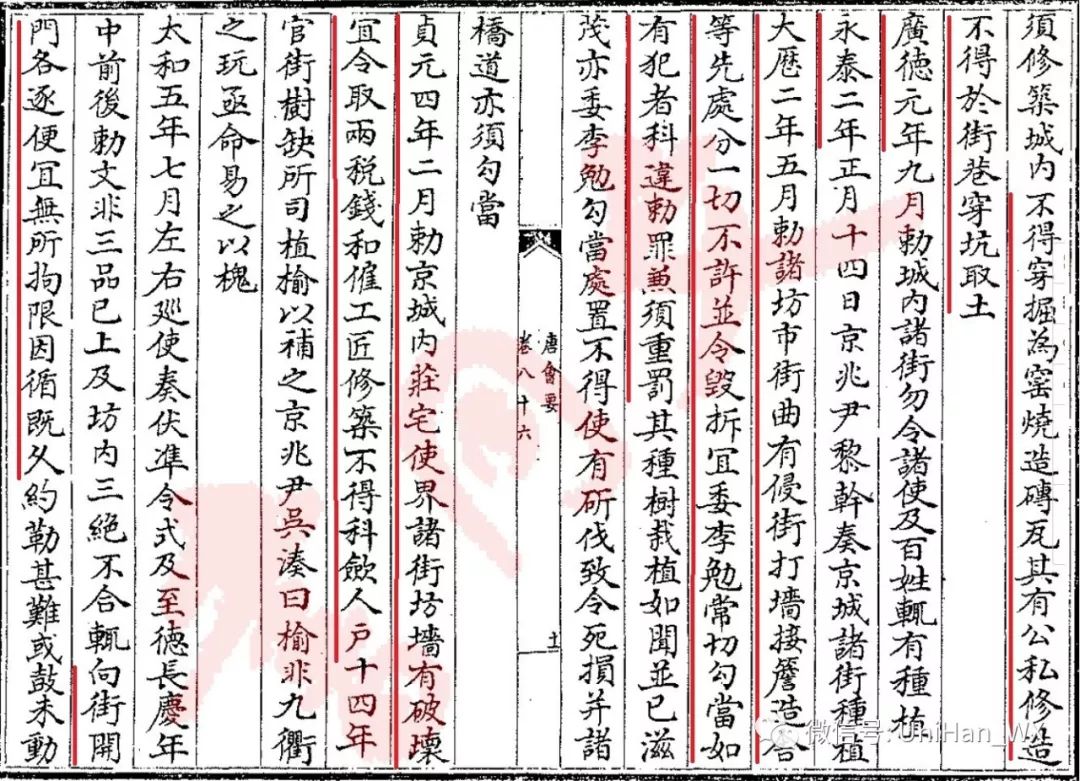 須修築城内不得穿掘為窑燒造磚瓦其有公私修造
不得於街巷穿坑取土
廣德元年九月勅城内諸街勿令諸使及百姓輒有種植
永泰二年正月十四日京兆尹黎幹奏京城諸街種植
大歷二年五月勅諸坊市街曲有侵街打墻接簷造舍
等先處分一切不許並令毀拆宜委李勉常切勾當如
有犯者科違勅罪兼須重罰其種樹栽植如聞並已滋
茂亦委李勉勾當處置不得使有斫伐致令死損并諸
橋道亦須勾當
唐會要
卷八十六
土
貞元四年二月勅京城内莊宅使界諸街坊墻有破壞
宜令取兩税錢和催工匠修築不得科歛人户十四年
官街樹缺所司植榆以補之京兆尹吳湊曰榆非九衢
之玩亟命易之以槐
太和五年七月左右廵使奏伏準令式及至德長慶年
中前後勅文非三品已上及坊内三絶不合輒向街開
門各逐便宜無所拘限因循既久約勒甚難或鼓未動
微信号: UniHan_W